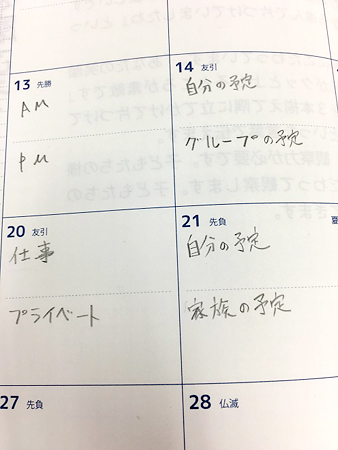 13 先勝
AM
PM
14 友引
自分の予定
グループの予定
20 友引
仕事
プライベート
21 先負
自分の予定
家族の予定
27 先負
28 仏滅